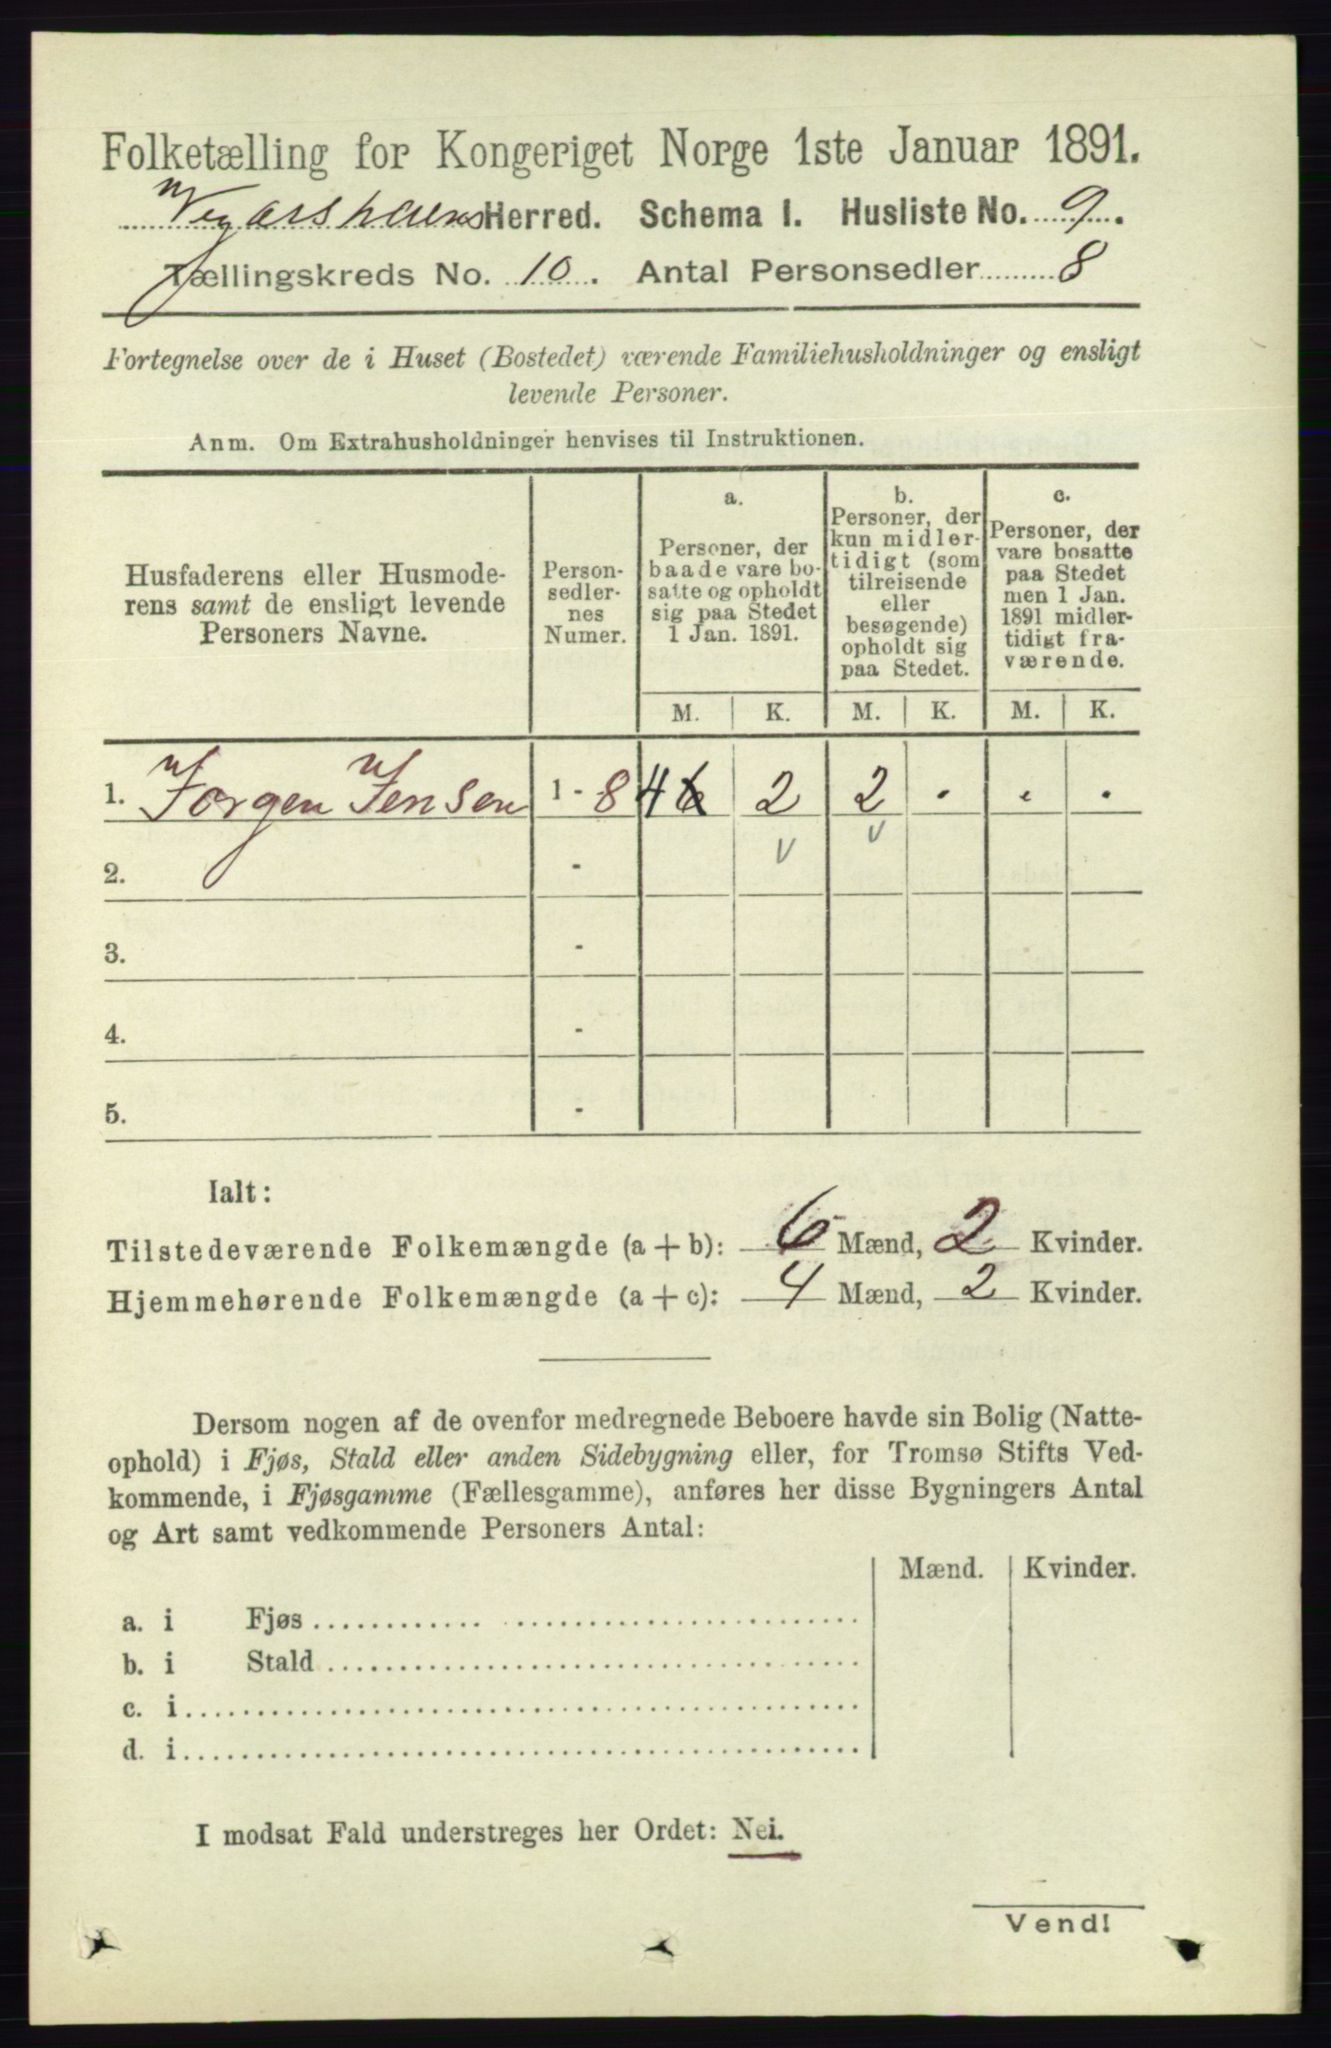 Folketælling for Kongeriget Norge 1ste Januar 1891.
Vegarsheiens Herred. Schema I. Husliste No. 9.
Tællingskreds No. 10. Antal Personsedler 8
Fortegnelse over de i Huset (Bostedet) værende Familiehusholdninger og ensligt
levende Personer.
Anm. Om Extrahusholdninger henvises til Instruktionen.
Husfaderens eller Husmode-
rens samt de ensligt levende
Personers Navne.
Person-
sedler-
nes
Numer.
a.
Personer, der
baade vare bo-
satte og opholdt
sig paa Stedet
1 Jan. 1891.
b.
Personer, der
kun midler-
tidigt (som
tilreisende
eller
besøgende)
opholdt sig
paa Stedet.
c.
Personer, der
vare bosatte
paa Stedet
men 1 Jan.
1891 midler-
tidigt fra-
værende.
M. K. M. K. M. K.
1. Jørgen Jensen 1 - 8 4 6 2 2 . . .
2. - v v
3. -
4. -
5. -
Ialt:
Tilstedeværende Folkemængde (a + b): 6 Mænd, 2 Kvinder.
Hjemmehørende Folkemængde (a + c): 4 Mænd, 2 Kvinder.
Dersom nogen af de ovenfor medregnede Beboere havde sin Bolig (Natte-
ophold) i Fjøs, Stald eller anden Sidebygning eller, for Tromsø Stifts Ved-
kommende, i Fjøsgamme (Fællesgamme), anføres her disse Bygningers Antal
og Art samt vedkommende Personers Antal:
Mænd. Kvinder.
a. i Fjøs
b. i Stald
c. i
d. i
I modsat Fald understreges her Ordet: Nei.
Vend!